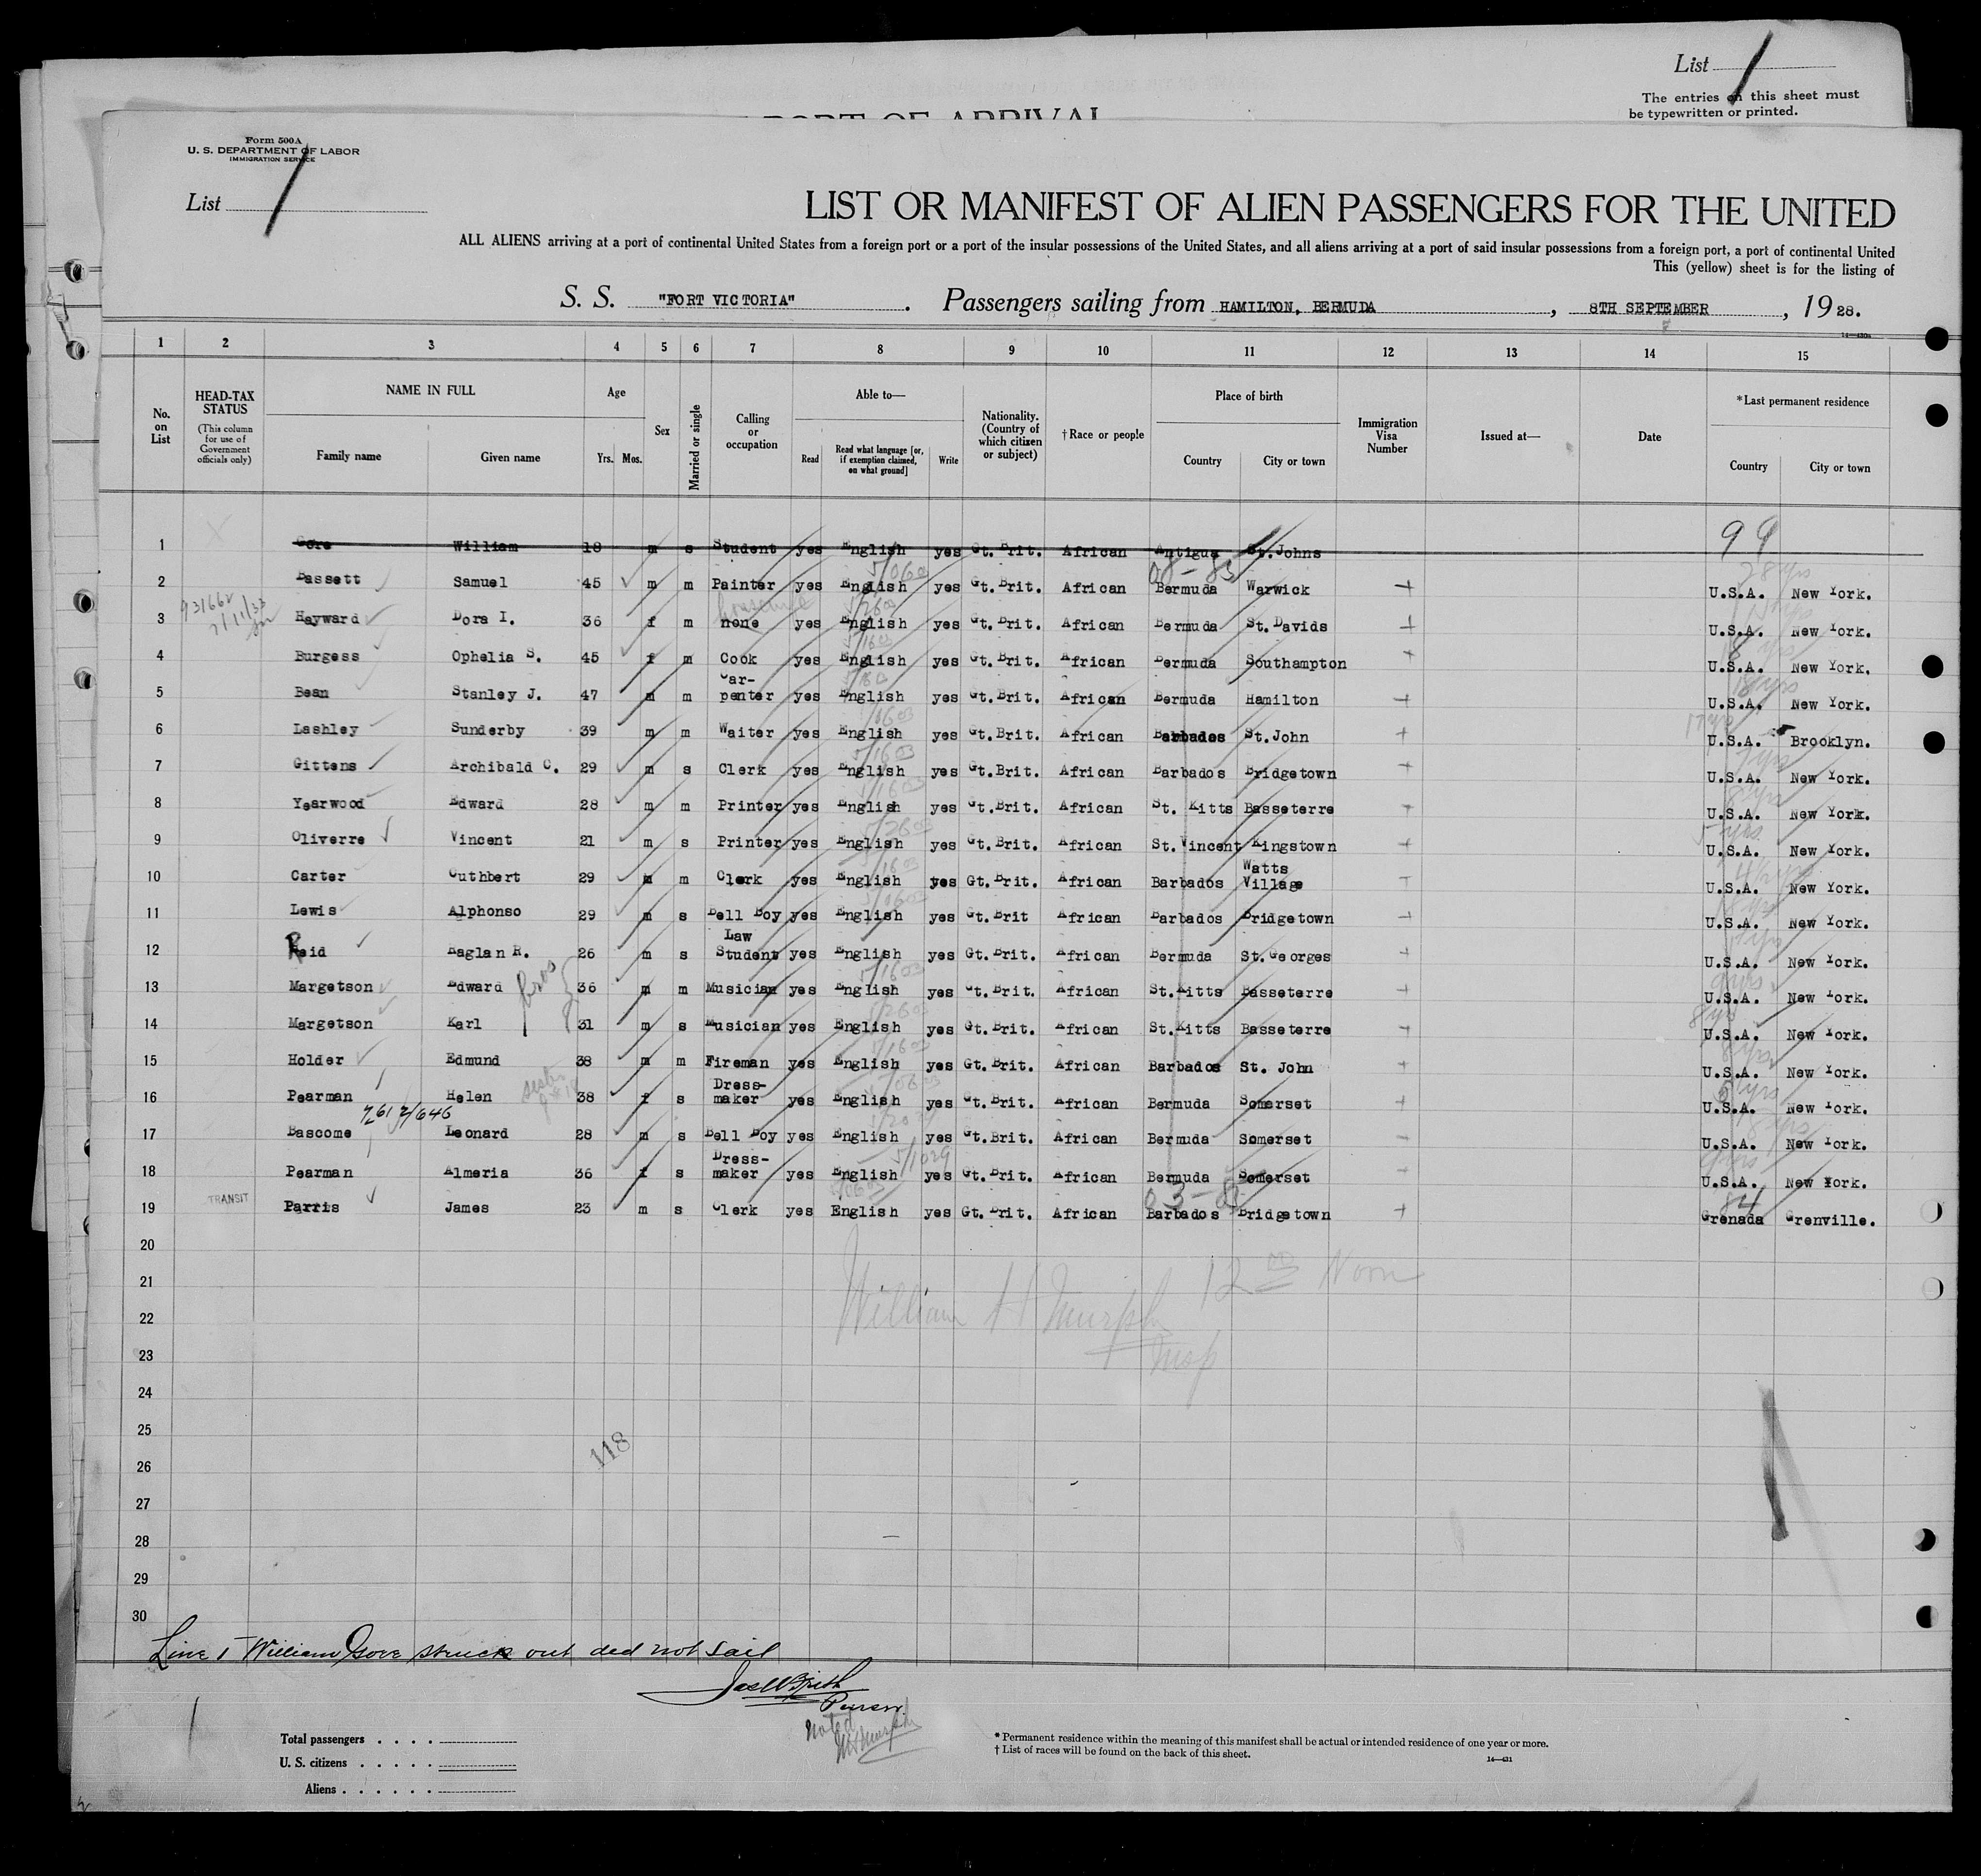 List /
The entries on this sheet must
be typewritten or printed.
PORT OF ARRIVAL
Form 500A
U. S. DEPARTMENT OF LABOR
IMMIGRATION SERVICE
List /
LIST OR MANIFEST OF ALIEN PASSENGERS FOR THE UNITED
ALL ALIENS arriving at a port of continental United States from a foreign port or a port of the insular possessions of the United States, and all aliens arriving at a port of said insular possessions from a foreign port, a port of continental United
This (yellow) sheet is for the listing of
S. S. "FORT VICTORIA". Passengers sailing from HAMILTON, BERMUDA, 8TH SEPTEMBER, 1928.
14—430a
1 2 3 4 5 6 7 8 9 10 11 12 13 14 15
No. on List
HEAD-TAX STATUS (This column for use of Government officials only)
NAME IN FULL Family name Given name
Age Yrs. Mos.
Sex
Married or single
Calling or occupation
Able to— Read Read what language [or, if exemption claimed, on what ground] Write
Nationality. (Country of which citizen or subject)
†Race or people
Place of birth Country City or town
Immigration Visa Number
Issued at—
Date
*Last permanent residence Country City or town
1 Gore William 18 m s Student yes English yes Gt. Brit. African Antigua St. Johns 99
2 Bassett Samuel 45 m m Painter yes English yes Gt. Brit. African Bermuda Warwick U.S.A. New York.
3 Hayward Dora I. 36 f m none yes English yes Gt. Brit. African Bermuda St. Davids U.S.A. New York.
4 Burgess Ophelia S. 45 f m Cook yes English yes Gt. Brit. African Bermuda Southampton U.S.A. New York.
5 Bean Stanley J. 47 m m Car-penter yes English yes Gt. Brit. African Bermuda Hamilton U.S.A. New York.
6 Lashley Sunderby 39 m m Waiter yes English yes Gt. Brit. African Barbados St. John U.S.A. Brooklyn.
7 Gittens Archibald C. 29 m s Clerk yes English yes Gt. Brit. African Barbados Bridgetown U.S.A. New York.
8 Yearwood Edward 28 m m Printer yes English yes Gt. Brit. African St. Kitts Basseterre U.S.A. New York.
9 Oliverre Vincent 21 m s Printer yes English yes Gt. Brit. African St. Vincent Kingstown U.S.A. New York.
10 Carter Cuthbert 29 m m Clerk yes English yes Gt. Brit. African Barbados Watts Village U.S.A. New York.
11 Lewis Alphonso 29 m s Bell Boy yes English yes Gt. Brit African Barbados Bridgetown U.S.A. New York.
12 Reid Raglan R. 26 m s Law Student yes English yes Gt. Brit. African Bermuda St. Georges U.S.A. New York.
13 Margetson Edward 36 m m Musician yes English yes Gt. Brit. African St. Kitts Basseterre U.S.A. New York.
14 Margetson Karl 31 m s Musician yes English yes Gt. Brit. African St. Kitts Basseterre U.S.A. New York.
15 Holder Edmund 38 m m Fireman yes English yes Gt. Brit. African Barbados St. John U.S.A. New York.
16 Pearman Helen 38 f s Dress-maker yes English yes Gt. Brit. African Bermuda Somerset U.S.A. New York.
17 Bascome Leonard 28 m s Bell Boy yes English yes Gt. Brit. African Bermuda Somerset U.S.A. New York.
18 Pearman Almeria 36 f s Dress-maker yes English yes Gt. Brit. African Bermuda Somerset U.S.A. New York.
19 TRANSIT Parris James 23 m s Clerk yes English yes Gt. Brit. African Barbados Bridgetown Grenada Grenville.
20
21 William H Murphy 12 00 Noon
22
23 Insp
24
25
26 118
27
28
29
30
Line 1 William Gove struck out ded not sail
Purser
noted
Total passengers
U. S. citizens
Aliens
* Permanent residence within the meaning of this manifest shall be actual or intended residence of one year or more.
† List of races will be found on the back of this sheet.
14—431